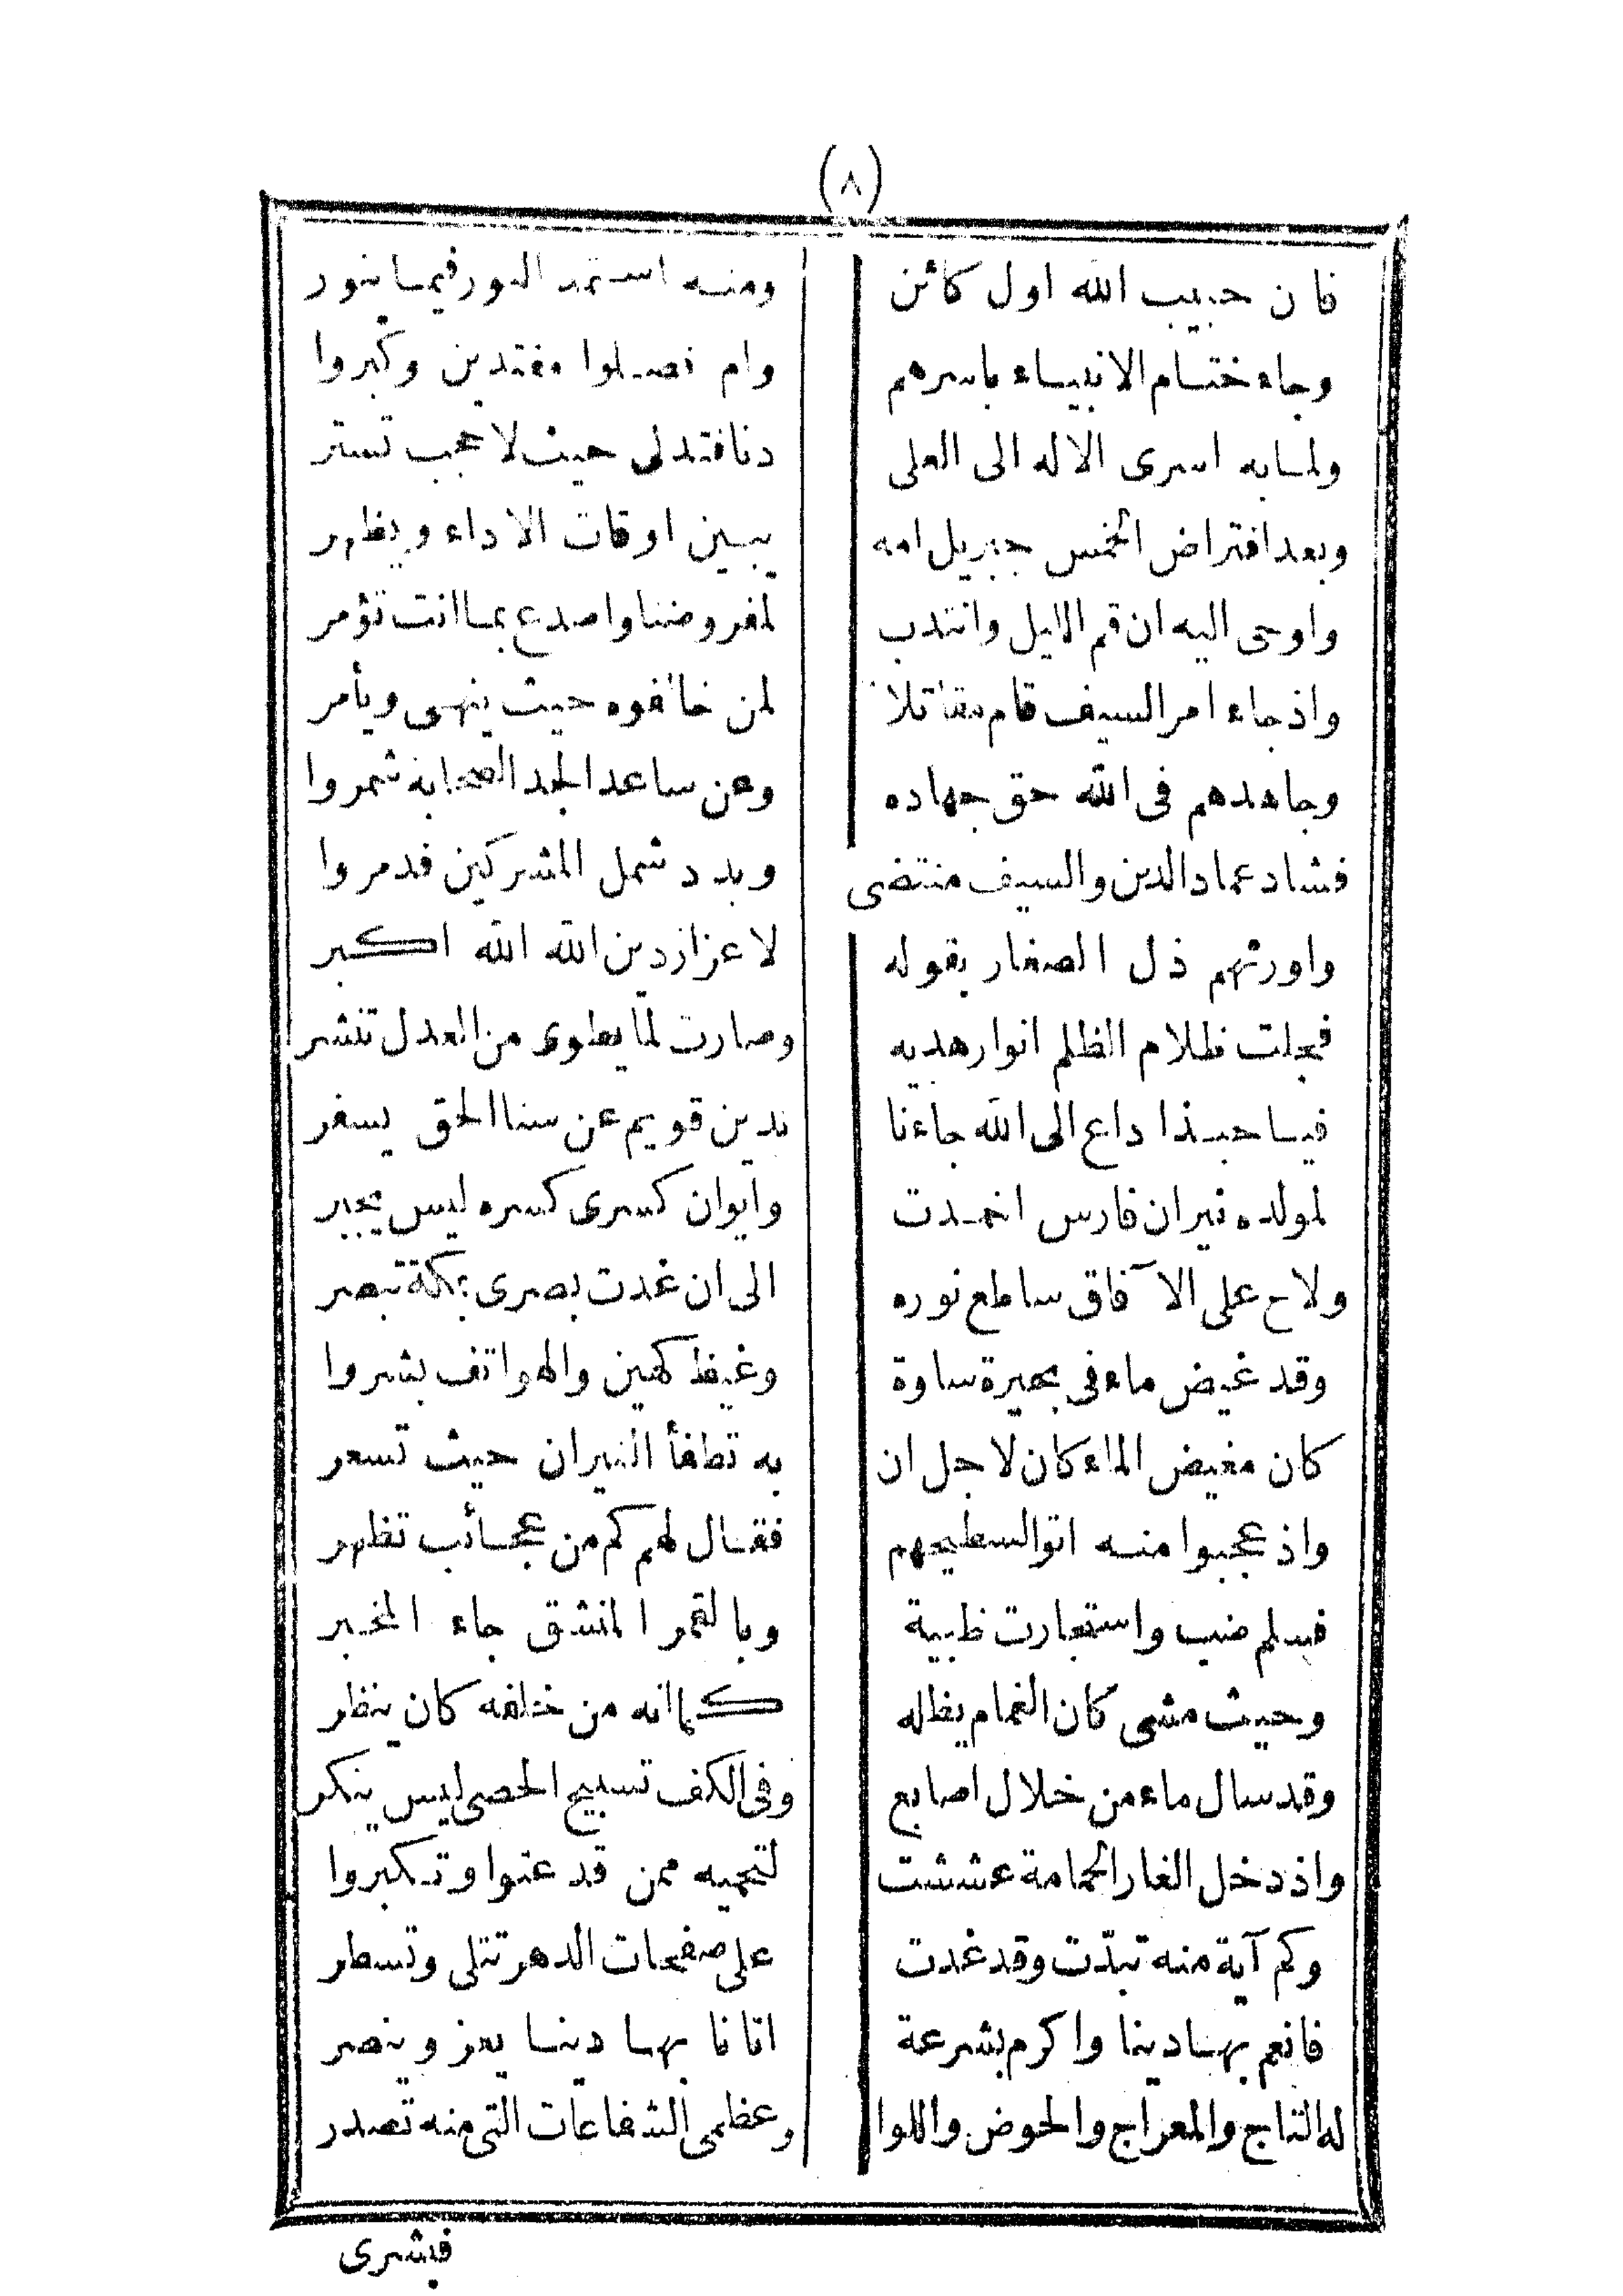 (٨)
فان حبيب الله اول كائن ومنه استمد النور فيما ينور
وجاء ختام الانبياء باسرهم وام فصلوا مقتدين وكبروا
ولما به اسرى الاله الى العلى دنا فتدلى حيث لا حجب تستر
وبعد افتراض الخمس جبريل امه يبين اوقات الاداء ويظهر
واوحى اليه ان قم الليل وانتدب لمفروضنا واصدع بما انت تؤمر
واذ جاء امر السيف قام مقاتلا لمن خالفوه حيث ينهى ويأمر
وجاهدهم فى الله حق جهاده وعن ساعد الجد الصحابة شمروا
فشاد عماد الدين والسيف منتضى وبدد شمل المشركين فدمروا
واورثهم ذل الصغار بقوله لاعزاز دين الله الله اكبر
فجلت ظلام الظلم انوار هديه وصارت لما يطوى من العدل تنشر
فيا حبذا داع الى الله جاءنا بدين قويم عن سنا الحق يسفر
لمولده نيران فارس اخمدت وايوان كسرى كسره ليس يجبر
ولاح على الآفاق ساطع نوره الى ان غدت بصرى بمكة تبصر
وقد غيض ماء فى بحيرة ساوة وغيظ كهين والهواتف بشروا
كان مغيض الماء كان لاجل ان به تطفأ النيران حيث تسعر
واذ عجبوا منه اتوا لسطيحهم فقال لهم كم من عجائب تظهر
فسلم ضب واستجارت ظبية وبالقمر المنشق جاء المخبر
وحيث مشى كان الغمام يظله كما انه من خلفه كان ينظر
وقد سال ماء من خلال اصابع وفى الكف تسبيح الحصى ليس ينكر
واذ دخل الغار الحمامة عششت لتحميه ممن قد عتوا وتكبروا
وكم آية منه تبدّت وقد غدت على صفحات الدهر تتلى وتسطر
فانعم بهادينا واكرم بشرعة اتانا بها دينا يعز وينصر
له التاج والمعراج والحوض واللوا وعظمى الشفاعات التى منه تصدر
فبشرى